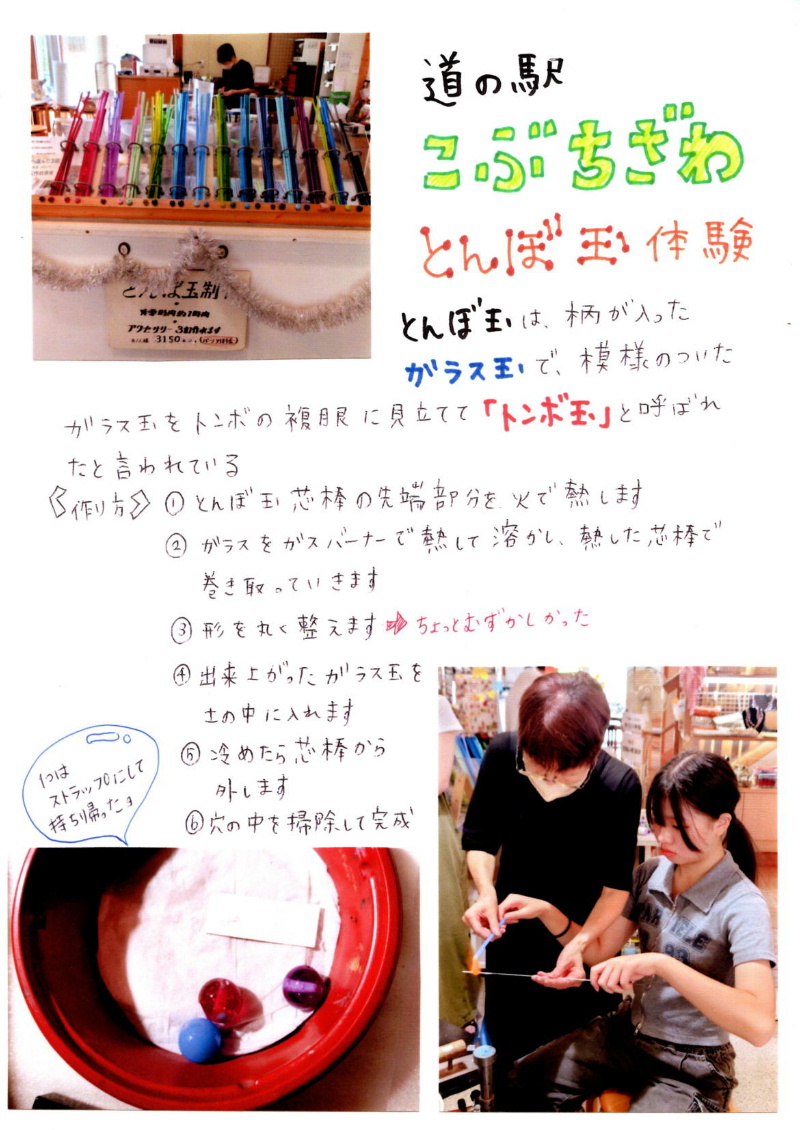 道の駅
こぶちざわ
とんぼ玉体験
とんぼ玉は、柄が入った
ガラス玉で、模様のついた
ガラス玉をトンボの複眼に見立てて「トンボ玉」と呼ばれ
たと言われている
<作り方> ① とんぼ玉芯棒の先端部分を火で熱します
② ガラスをガスバーナーで熱して溶かし、熱した芯棒で
巻き取っていきます
③ 形を丸く整えます ⇒ ちょっとむずかしかった
④ 出来上がったガラス玉を
土の中に入れます
⑤ 冷めたら芯棒から
外します
⑥ 穴の中を掃除して完成
1つは
ストラップにして
持ち帰ったョ
とんぼ玉制
アクセサリー
3150